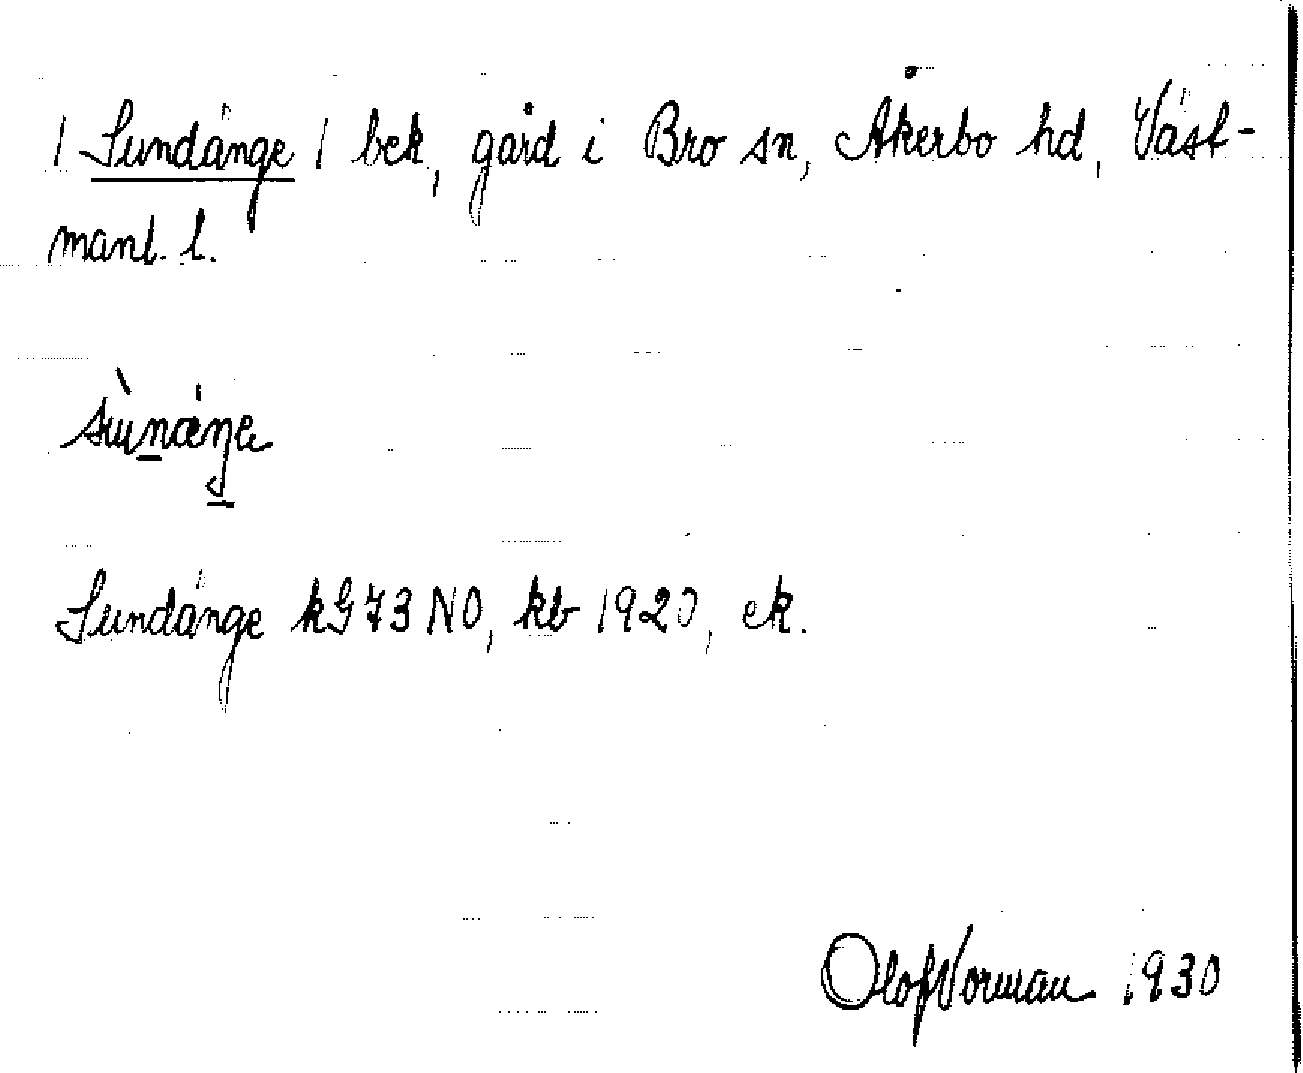 / Sundänge / bek, gård i Bro sn, Åkerbo hd, Väst-
manl. l.
sùnæŋe
Sundänge kG73NO, kb 1920, ek.
Olof Vorman 1930